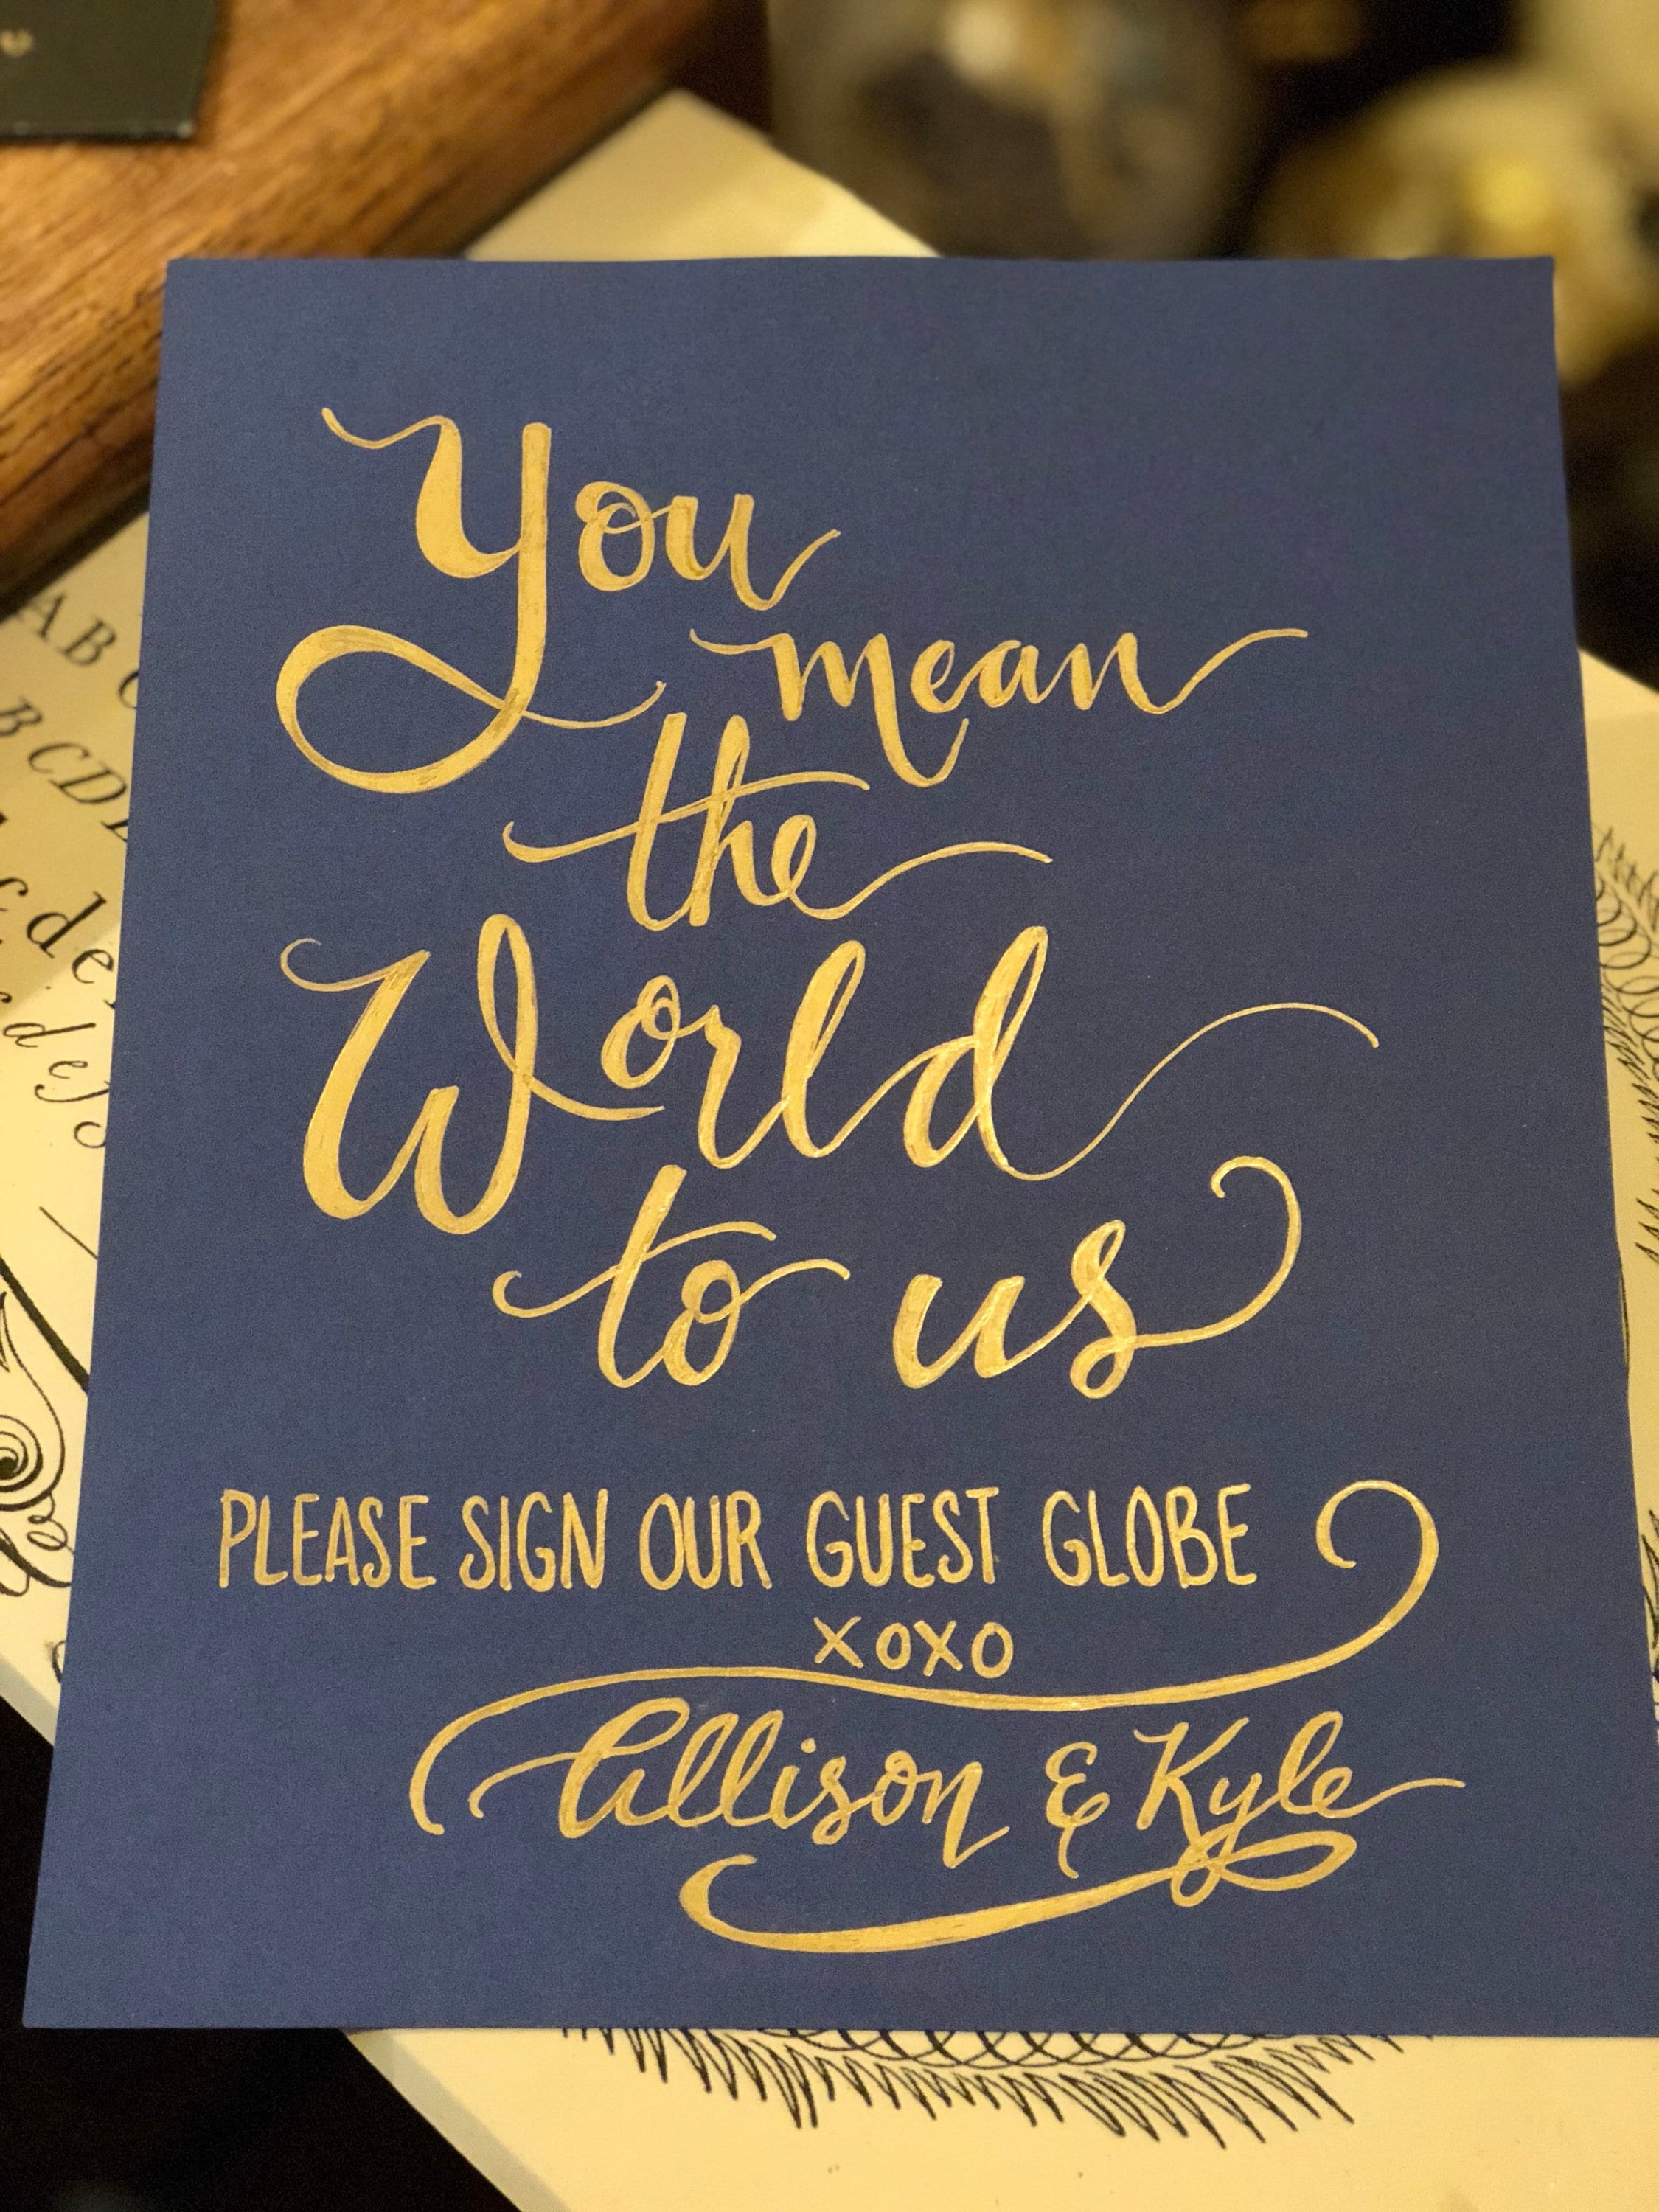 You
mean
the
World
to us
PLEASE SIGN OUR GUEST GLOBE
XOXO
Allison & Kyle
AB
BCD
cde